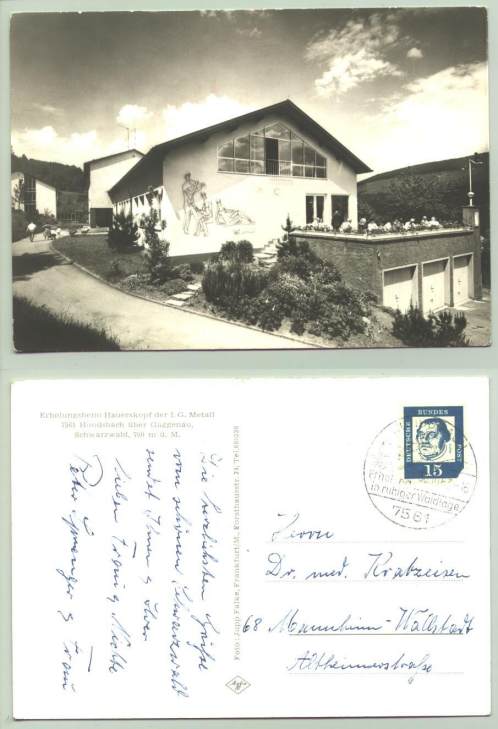 Erholungsheim Hauerskopf der I. G. Metall
7561 Hundsbach über Gaggenau,
Schwarzwald, 700 m ü. M.
Die herzlichsten Grüße
vom schönen Schwarzwald
sendet Ihnen & Ihrer
lieben Frau &
Peter & Frau
Foto: Jupp Falke, Frankfurt/M., Forsthausstr.
Agfa
DEUTSCHE BUNDES POST
15
in ruhiger Waldlage
7561
Herrn
Dr. med. Kratzeisen
68 Mannheim-Wallstadt
Altheimerstraße